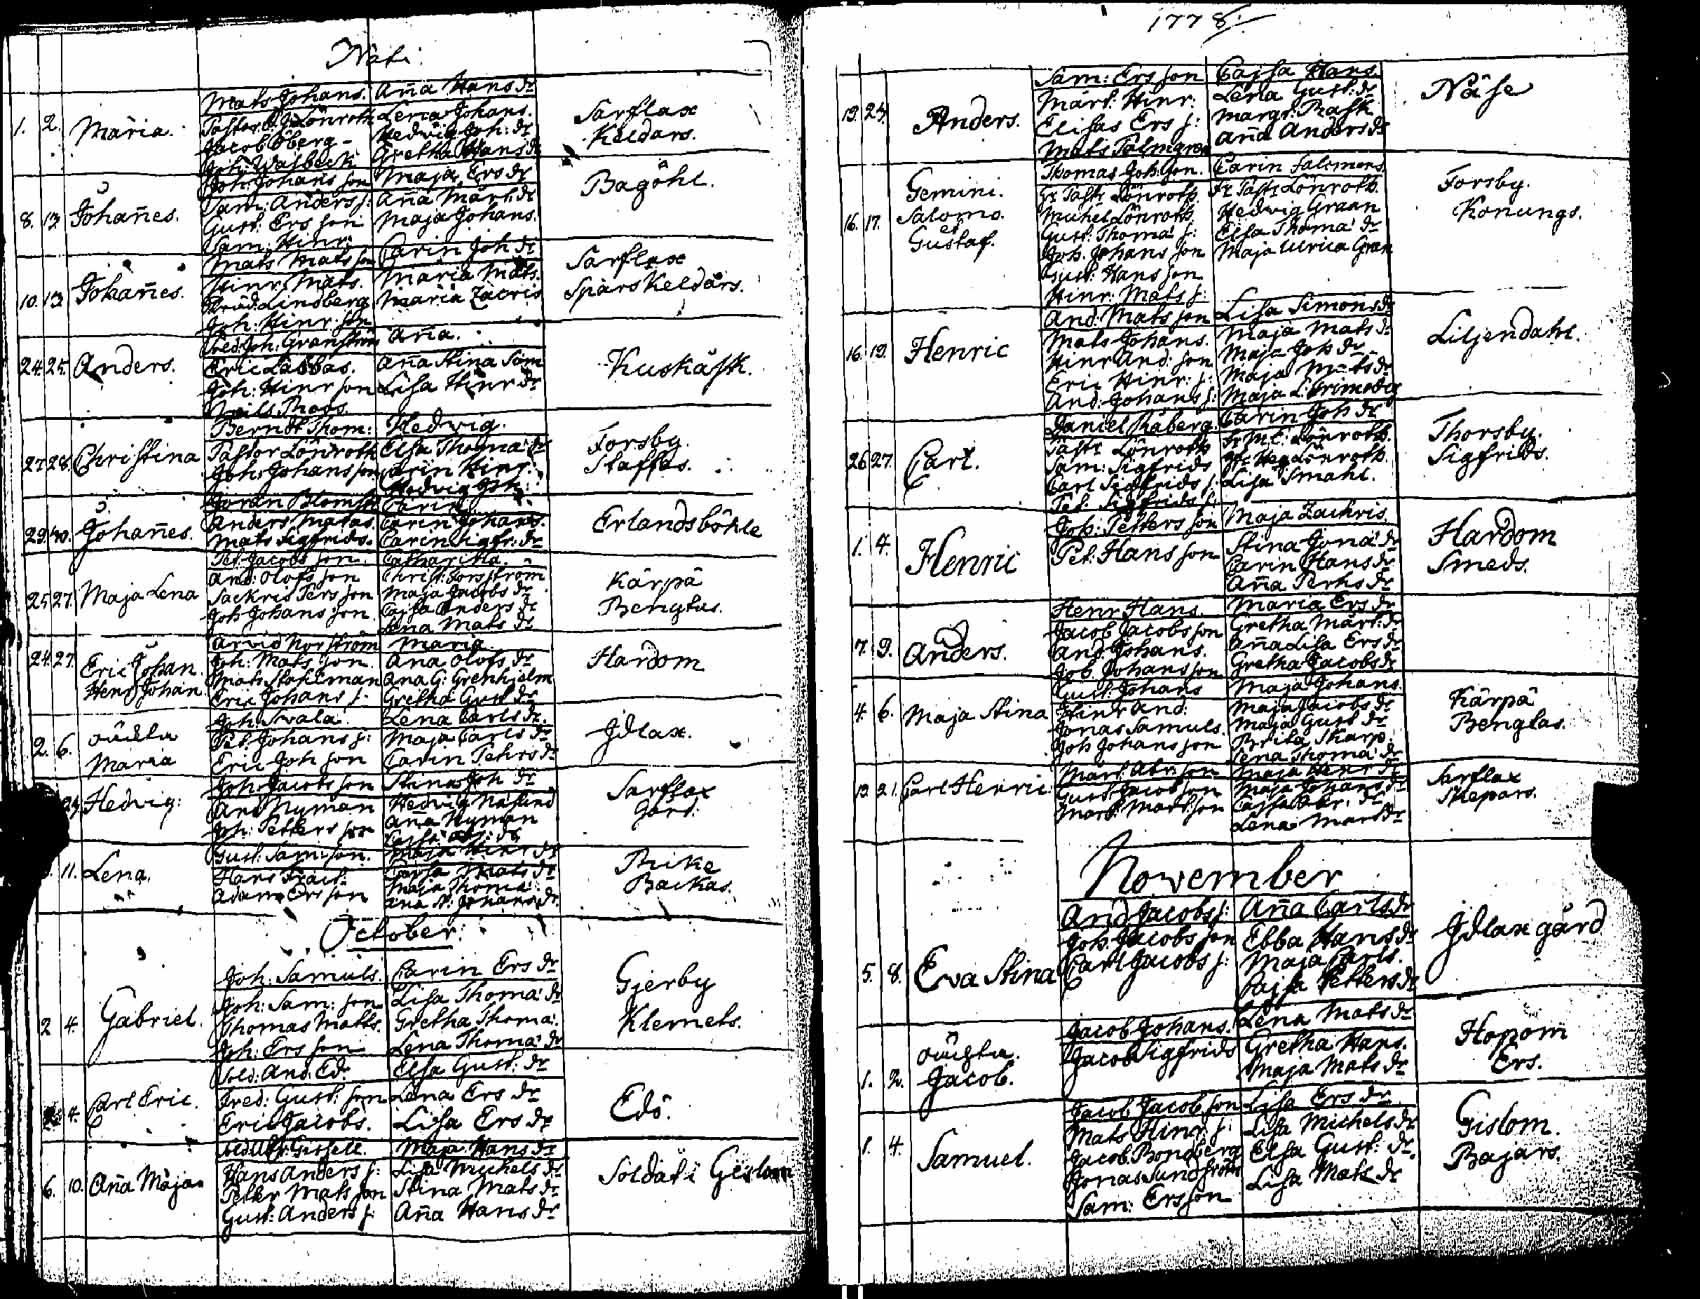 Nati.
1. 2. Maria.
Mats Johans. Aña Hans dr
Pastor J. Lönroth Lena Johans.
Jacob Öberg Hedvig Joh: dr
Joh: Walbeck Gretha Hans dr
Sarflax
Keldars.
8. 13. Johañes.
Joh: Johans son Maja Ers dr
Sam: Anders s: Aña Märt: dr
Gust: Ers son Maja Johans.
Sam: Hinr:
Bagöhl.
10. 13. Johañes.
Mats Mats son Carin Joh: dr
Hinr: Mats. Maria Mats.
Lindberg Maria Zacris
Joh: Hinr son
Sarflax
Spårs Keldårs.
24. 25. Anders.
Joh: Granström Aña.
Eric Labbas. Aña Stina Sam
Joh: Hinr son Lisa Hinr dr
Neils Roos
Kuskåsk.
27. 28. Christina
Berndt Thom: Hedwig.
Pastor Lönroth Elsa Thoma: dr
Joh: Johans son Carin Hinr:
Hedvig Joh:
Forsby.
Staffas.
29. 40. Johañes.
Joran Blomst Carin
Anders Matas. Carin Johans.
Mats Sigfrids. Carin Sigfr: dr
Erlandsböhle
25. 27. Maja Lena
Pet: Jacobs son. Catharina.
And: Olofs son Christ: Forsström
Sackris Pers son Maja Jacobs dr
Joh Johans son. Cajsa Anders dr
Lena Mats dr
Kärpä
Bengtas.
24. 27. Eric Johan
Henr Johan
Arvid Norström Maria.
Joh: Mats son. Ana Olofs dr
Mats Stahlman Ana G: Grenhjelm
Eric Johans s: Gretha Gust dr
Hardom
2. 6. oächta
Maria
Joh: Svala. Lena Carls dr.
Pet: Johans s: Maja Carls dr
Eric Joh son Carin Pehrs dr
Jdlax.
29. Hedvig:
Joh: Jacobs son Stina Joh: dr
And Nyman Hedvig Näslind
Joh: Petters son Ana Nyman
Sarflax
Gård.
11. Lena.
Gust: Sam son. Maja Hinr dr
Hans Cajsa Mats dr
Adam Ers son Maja Thoma:
Ana St: Johans dr
Rike
Backas.
October
2 4. Gabriel.
Joh: Samuls. Carin Ers dr
Joh: Sam: son Lisa Thoma: dr
Thomas Matts. Gretha Thoma:
Joh: Ers son Lena Thoma: dr
Gjerby
Klemets.
4. Carl Eric.
Sold: And: Ed. Elsa Gust: dr
Fred: Gust: son Lena Ers dr
Eric Jacobs. Lisa Ers dr
Edö.
6. 10. Aña Maja
Maja Hans dr
Hans Anders s: Lisa Michels dr
Petter Mats son Stina Mats dr
Gust: Anders s: Aña Hans dr
Soldat i Gislom
1778.
19. 24. Anders.
Sam: Ers son Cajsa Hans.
Märt: Hinr: Lena Gust: dr
Elisas Ers s: Margr: Rask
Mats Palmgren Aña Anders dr
Näse
16. 17. Gemini.
Salomo.
et
Gustaf.
Thomas Joh: son. Carin Salomons
Hr Past: Lönroth. Fr Past: Lönroth.
Michel Lönroth Hedwig Graan
Gust: Thoma: s: Elsa Thoma: dr
Joh: Johans son Maja Ulrica Gran
Gust: Hans son
Hinr: Mats s:
Forsby.
Konungs.
16. 19. Henric
And: Mats son Lisa Simons dr
Mats Johans. Maja Mats dr
Hinr And: son Maja Joh: dr
Eric Hinr: s: Maja Mats dr
And: Johans s: Maja L: Grimsberg
Liljendahl.
26 27. Carl.
Daniel Råberg Carin Joh: dr
Past: Lönroth Lönroth.
Sam: Sigfrids Lönroth.
Carl Sigfrids s: Lisa Smahl.
Pet: Sigfrids s:
Thorsby.
Sigfrids.
1. 4. Henric
Joh: Petters son Maja Zachris
Pet: Hans son Stina Jona: dr
Carin Hans dr
Aña Pehrs dr
Hardom
Smeds.
7. 9. Anders.
Henr Hans. Maria Ers dr
Jacob Jacobs son Gretha Märt: dr
And: Johans. Aña Lisa Ers dr
Job: Johans son Gretha Jacobs dr
4. 6. Maja Stina
Gust: Johans Maja Johans.
Hindr And: Maja Jacobs dr
Jonas Samuls. Maja Gust dr
Joh Johans son Brita Skarp
Lena Thoma: dr
Kärpä
Bengtas.
19. 21. Carl Henric
Märt Abr son Maja Henr dr
Gust Jacob son Maja Johans dr
Märt: Märt: son Cajsa Abr: dr
Lena Mart dr
Sarflax
Skepars.
November
5. 8. Eva Stina
And Jacobs s: Aña Carls dr
Joh: Jacobs son Ebba Hans dr
Carl Jacobs s: Maja Carls.
Cajsa Petters dr
Jdlax gård
1. 2. oächta.
Jacob.
Jacob Johans. Lena Mats dr
Jacob Sigfrids Gretha Hans.
Maja Mats dr
Hopom
Ers.
1. 4. Samuel.
Jacob Jacob son Lisa Ers dr
Mats Hinr s: Lisa Michels dr
Jacob Bondberg Elsa Gust: dr.
Jonas Sundström Lisa Mats dr
Sam: Ersson
Gislom.
Bajars.